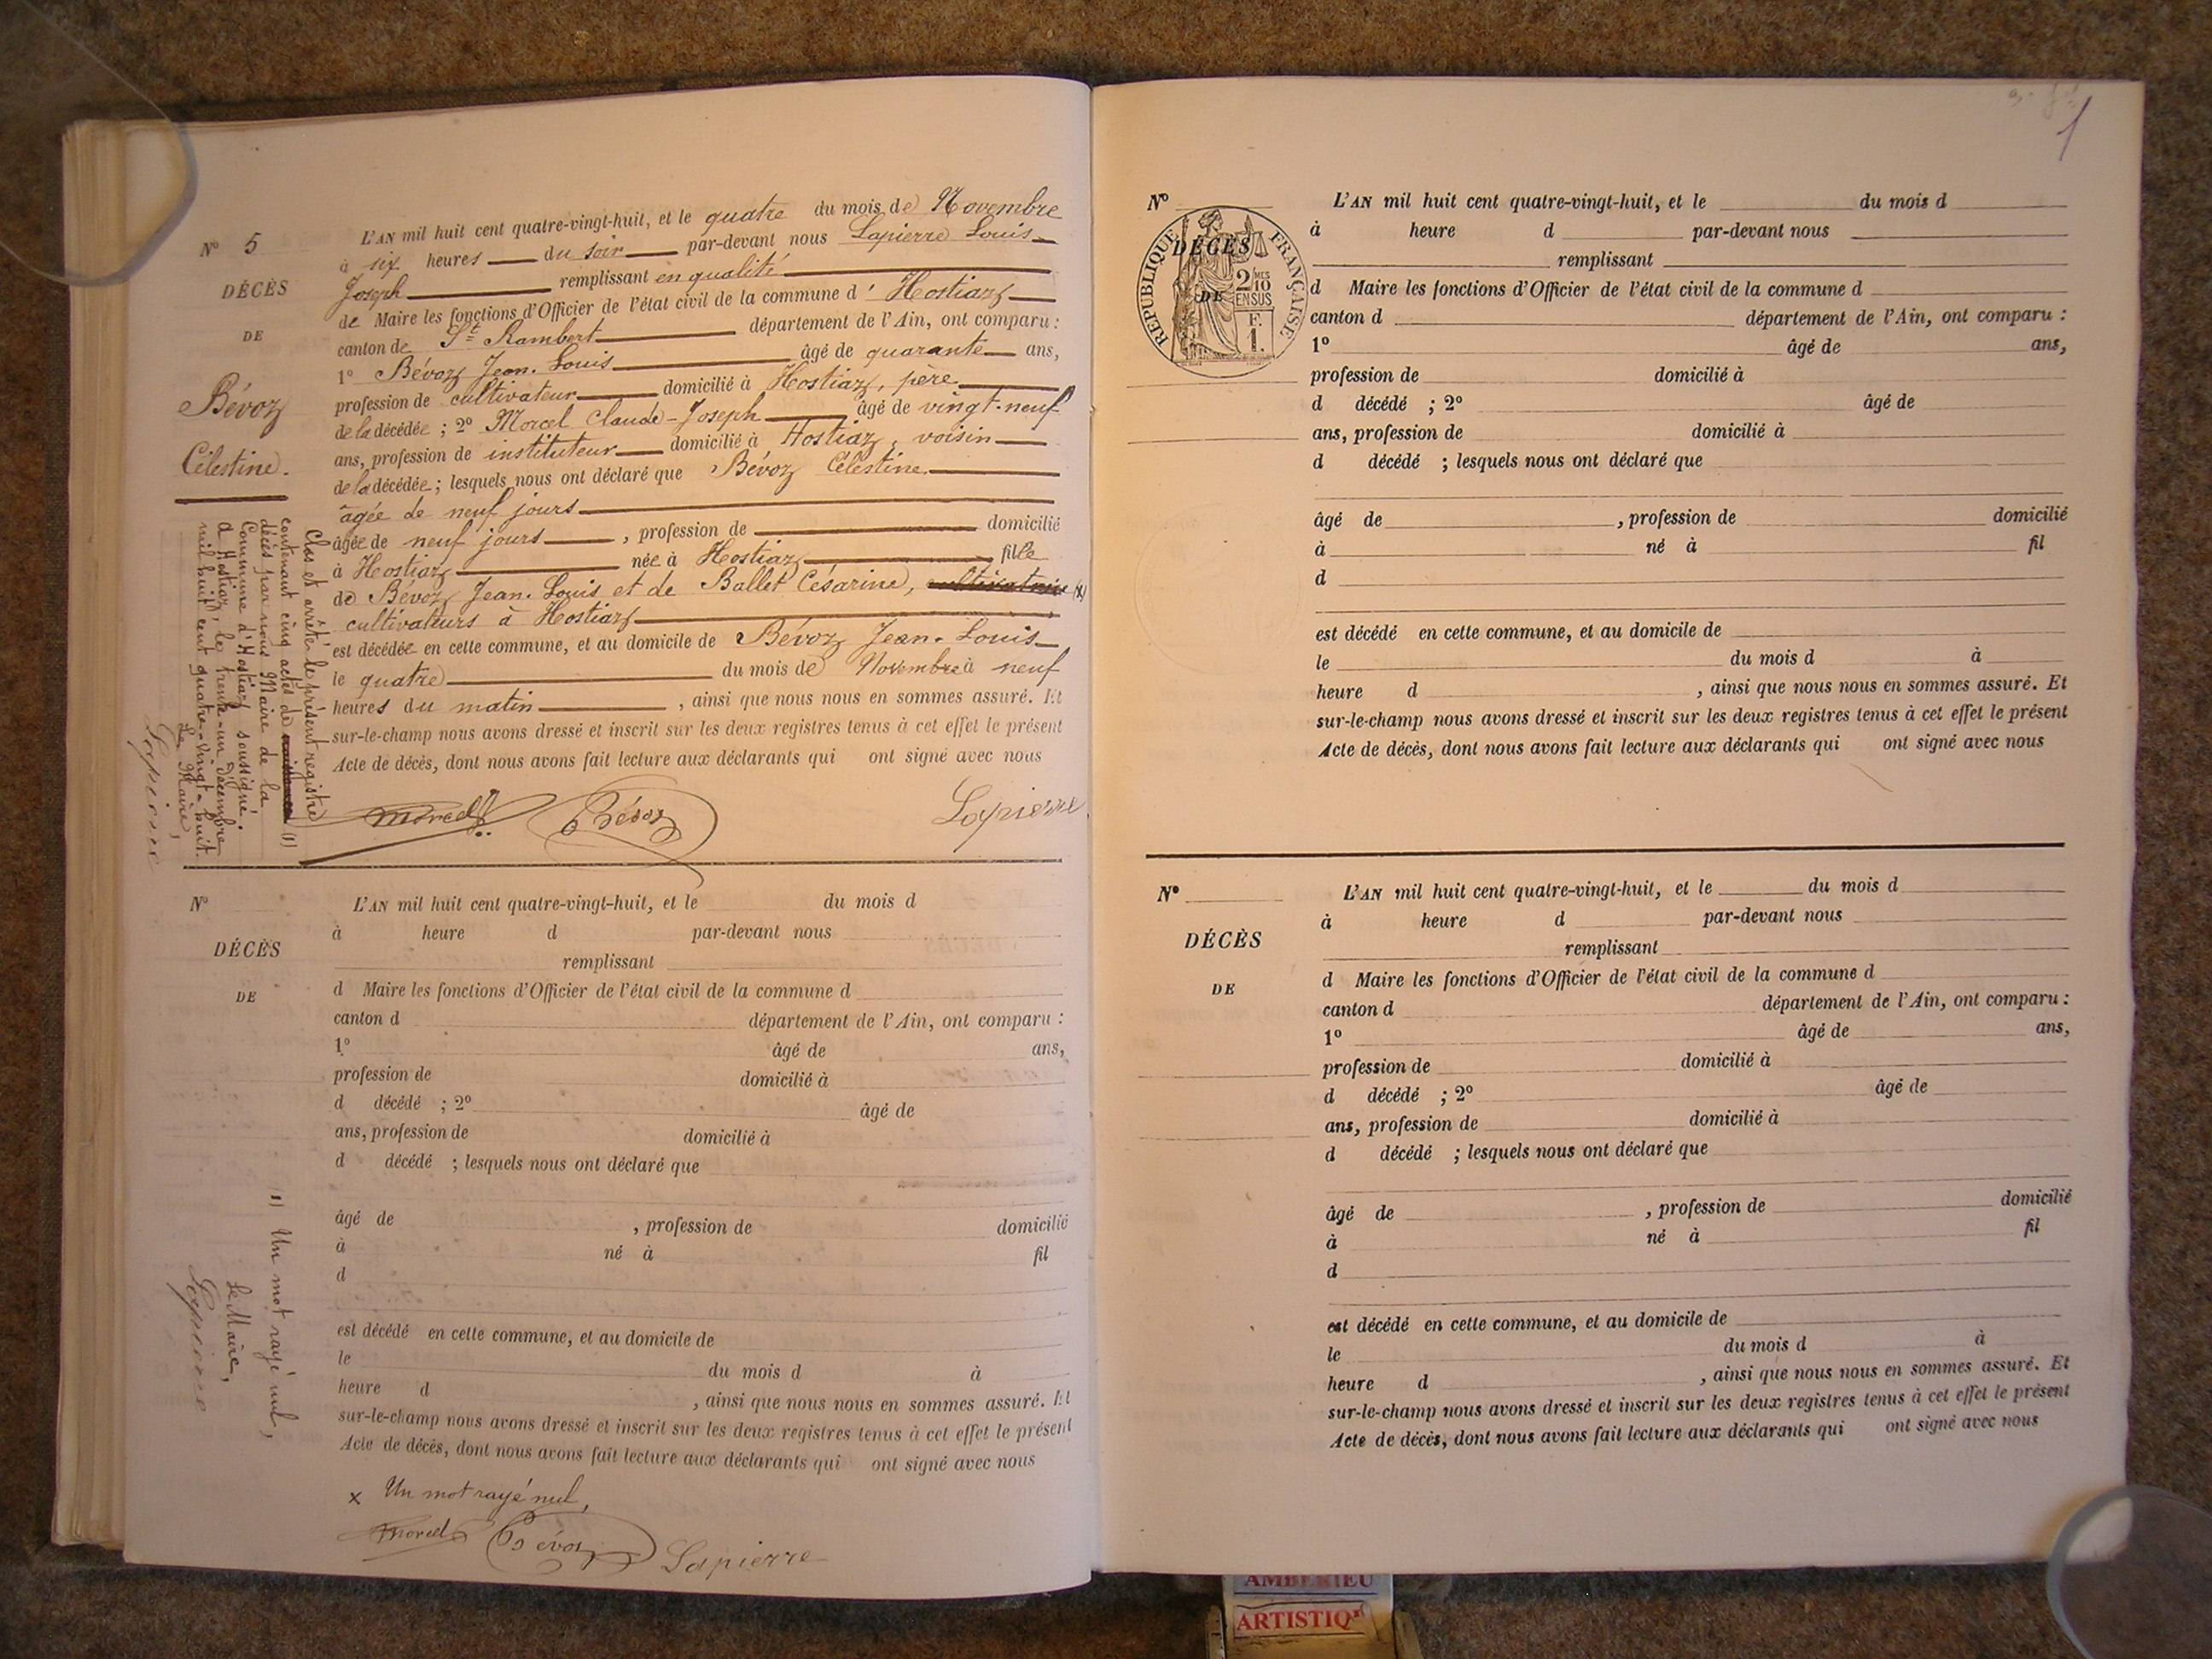 N° 5
DÉCÈS
DE
Bévoz
Célestine.
L'AN mil huit cent quatre-vingt-huit, et le quatre du mois de Novembre
à six heures du soir par-devant nous Lapierre Louis
Joseph remplissant en qualité
de Maire les fonctions d'Officier de l'état civil de la commune d'Hostiaz
canton de St Rambert département de l'Ain, ont comparu :
1° Bévoz Jean-Louis âgé de quarante ans,
profession de cultivateur domicilié à Hostiaz, père
de la décédée ; 2° Morcel Claude-Joseph âgé de vingt-neuf
ans, profession de instituteur domicilié à Hostiaz, voisin
de la décédée ; lesquels nous ont déclaré que Bévoz Célestine
âgée de neuf jours
âgée de neuf jours, profession de domicilié
à Hostiaz née à Hostiaz, fille
de Bévoz Jean-Louis et de Ballet Césarine, cultivatrice (x)
cultivateurs à Hostiaz
est décédée en cette commune, et au domicile de Bévoz Jean-Louis
le quatre du mois de Novembre à neuf
heures du matin, ainsi que nous nous en sommes assuré. Et
sur-le-champ nous avons dressé et inscrit sur les deux registres tenus à cet effet le présent
Acte de décès, dont nous avons fait lecture aux déclarants qui ont signé avec nous
Morcel Bévoz Lapierre
Clos et arrêté le présent registre
contenant cinq actes de (1)
décès par nous Maire de la
Commune d'Hostiaz soussigné.
A Hostiaz, le trente-un décembre
mil huit cent quatre-vingt-huit.
Le Maire,
Lapierre
N°
DÉCÈS
DE
L'AN mil huit cent quatre-vingt-huit, et le du mois d
à heure d par-devant nous
remplissant
d Maire les fonctions d'Officier de l'état civil de la commune d
canton d département de l'Ain, ont comparu :
1° âgé de ans,
profession de domicilié à
d décédé ; 2° âgé de
ans, profession de domicilié à
d décédé ; lesquels nous ont déclaré que
âgé de , profession de domicilié
à né à fil
d
est décédé en cette commune, et au domicile de
le du mois d à
heure d , ainsi que nous nous en sommes assuré. Et
sur-le-champ nous avons dressé et inscrit sur les deux registres tenus à cet effet le présent
Acte de décès, dont nous avons fait lecture aux déclarants qui ont signé avec nous
1) Un mot rayé nul,
Le Maire,
Lapierre
x Un mot rayé nul,
Morcel Bévoz Lapierre
N°
RÉPUBLIQUE FRANÇAISE
DÉCÈS
DE
2/10 MES
EN SUS
F.
1.
L'AN mil huit cent quatre-vingt-huit, et le du mois d
à heure d par-devant nous
remplissant
d Maire les fonctions d'Officier de l'état civil de la commune d
canton d département de l'Ain, ont comparu :
1° âgé de ans,
profession de domicilié à
d décédé ; 2° âgé de
ans, profession de domicilié à
d décédé ; lesquels nous ont déclaré que
âgé de , profession de domicilié
à né à fil
d
est décédé en cette commune, et au domicile de
le du mois d à
heure d , ainsi que nous nous en sommes assuré. Et
sur-le-champ nous avons dressé et inscrit sur les deux registres tenus à cet effet le présent
Acte de décès, dont nous avons fait lecture aux déclarants qui ont signé avec nous
N°
DÉCÈS
DE
L'AN mil huit cent quatre-vingt-huit, et le du mois d
à heure d par-devant nous
remplissant
d Maire les fonctions d'Officier de l'état civil de la commune d
canton d département de l'Ain, ont comparu :
1° âgé de ans,
profession de domicilié à
d décédé ; 2° âgé de
ans, profession de domicilié à
d décédé ; lesquels nous ont déclaré que
âgé de , profession de domicilié
à né à fil
d
est décédé en cette commune, et au domicile de
le du mois d à
heure d , ainsi que nous nous en sommes assuré. Et
sur-le-champ nous avons dressé et inscrit sur les deux registres tenus à cet effet le présent
Acte de décès, dont nous avons fait lecture aux déclarants qui ont signé avec nous
AMBERIEU
ARTISTIQ